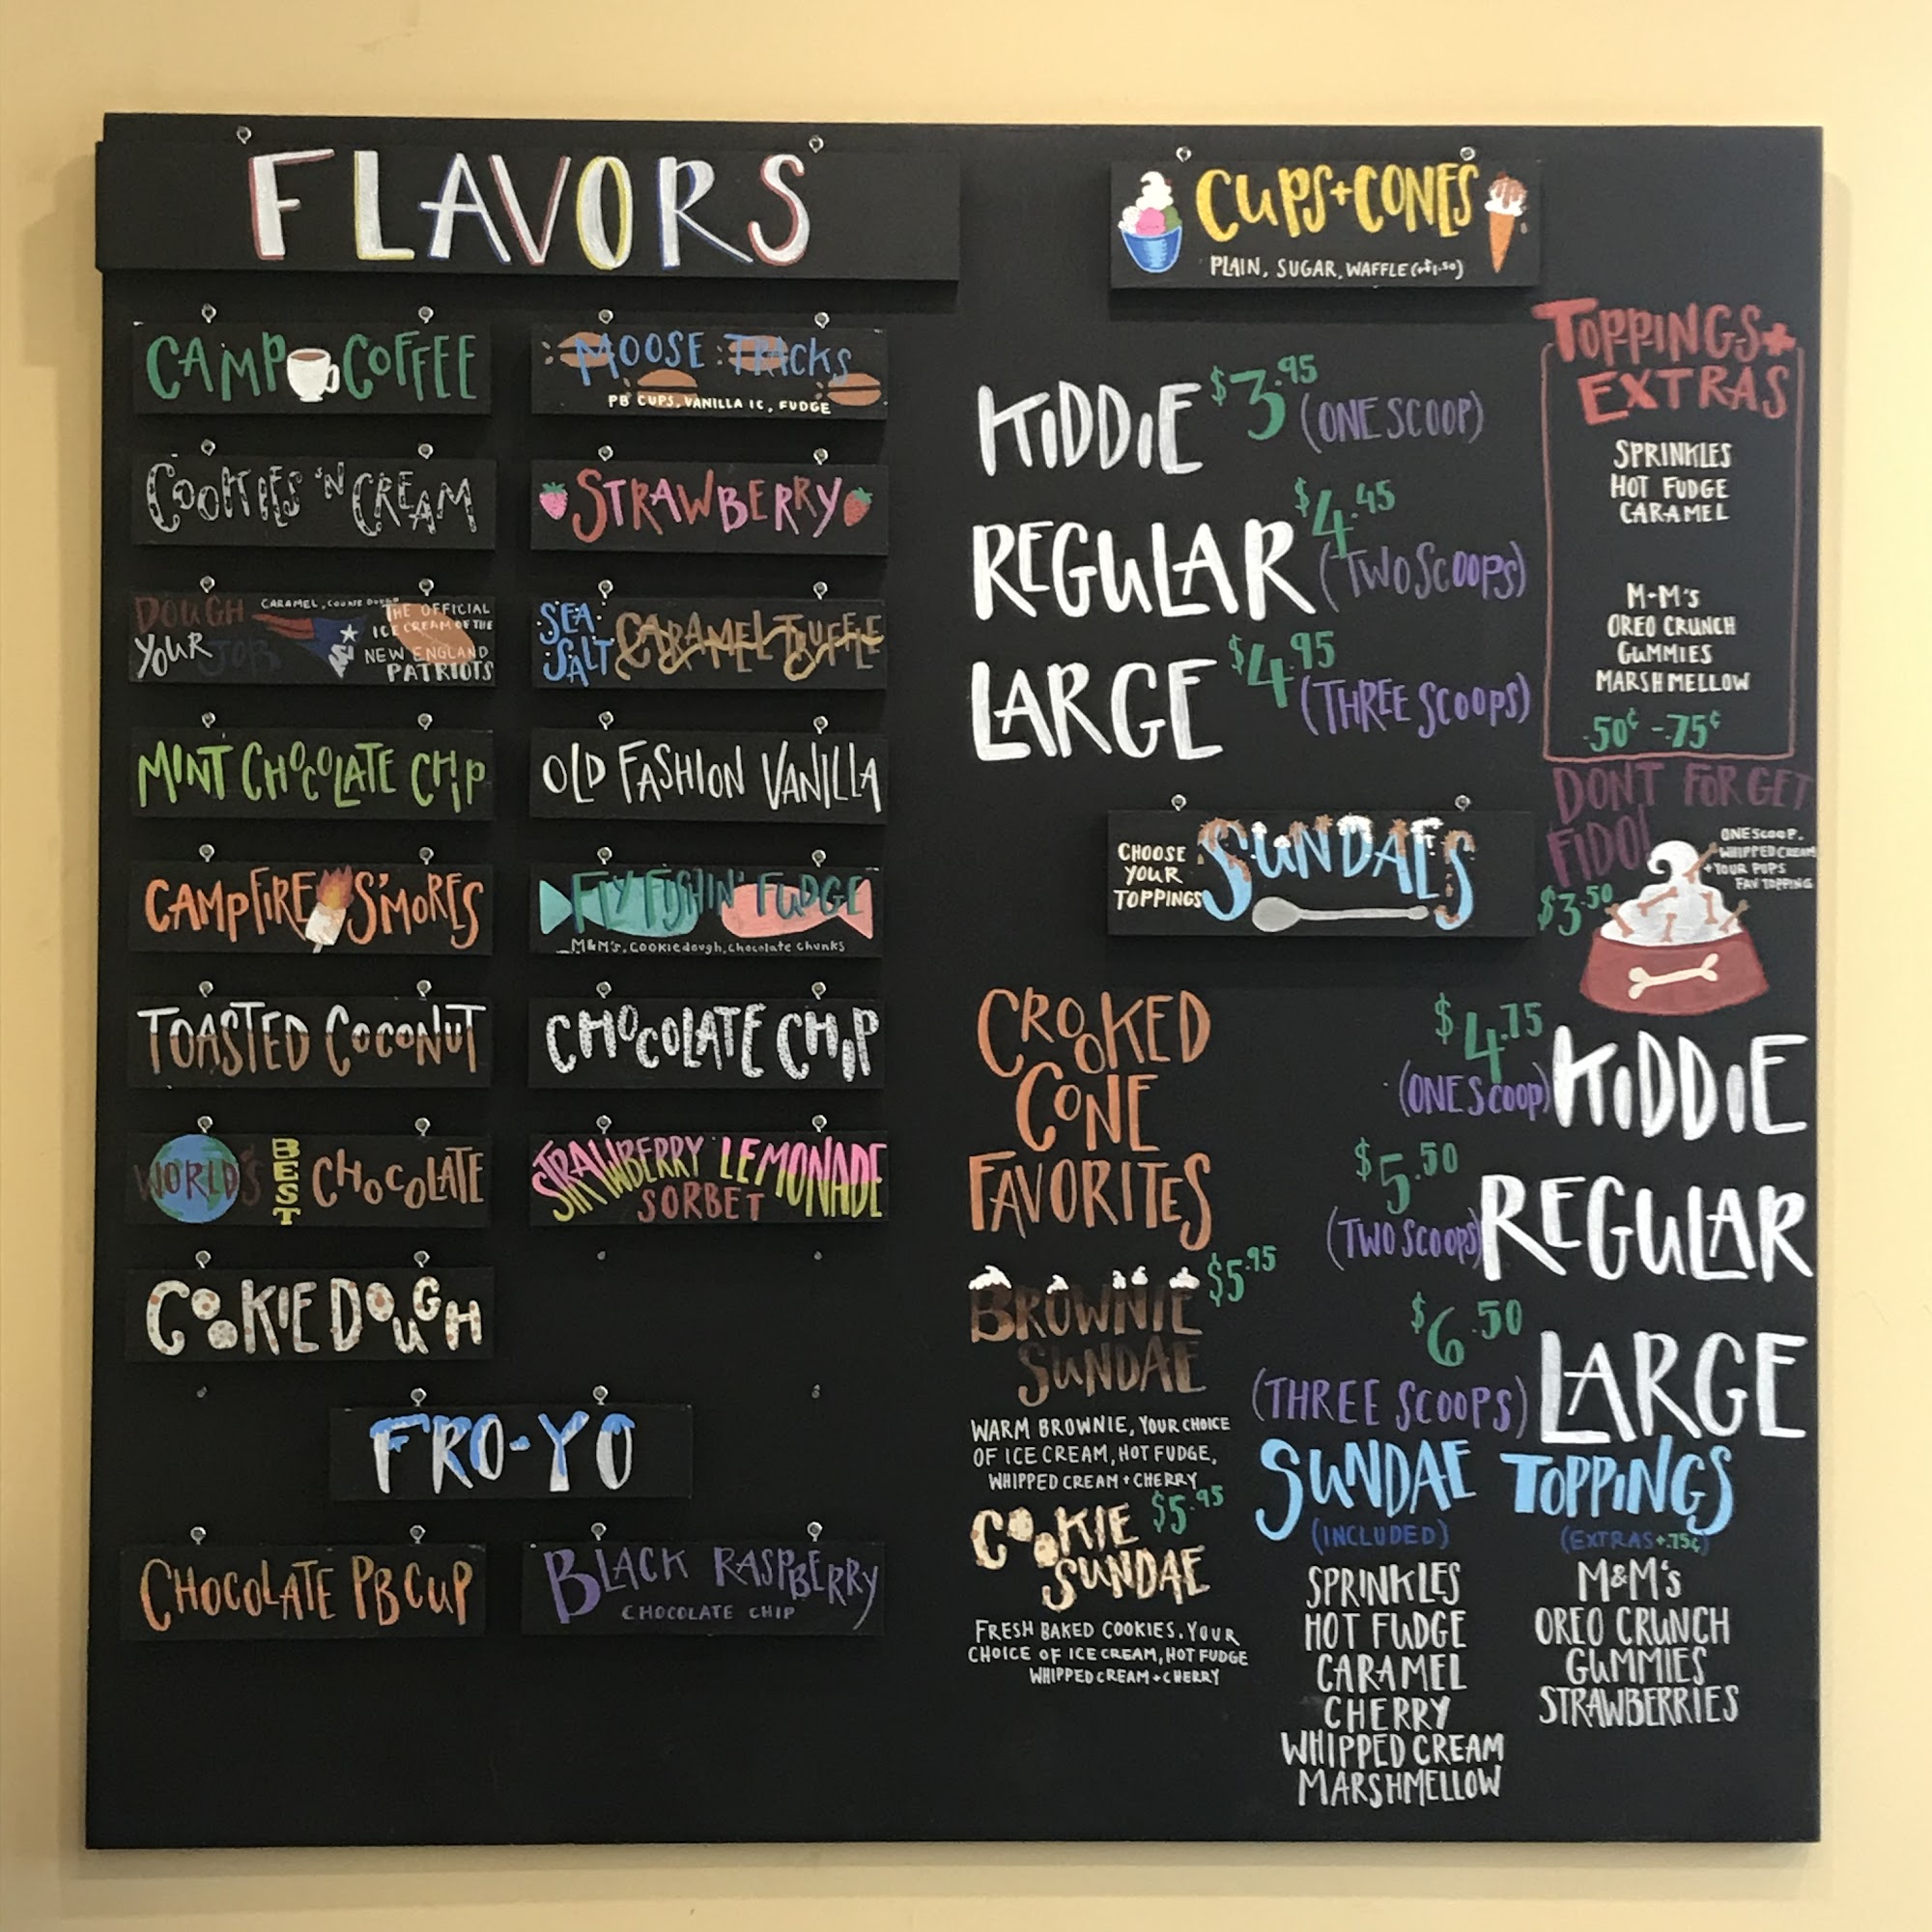 FLAVORS
CAMP COFFEE
MOOSE TRACKS
PB CUPS, VANILLA IC, FUDGE
COOKIES 'N CREAM
STRAWBERRY
DOUGH
YOUR JOB
CARAMEL, COOKIE DOUGH
THE OFFICIAL
ICE CREAM OF THE
NEW ENGLAND
PATRIOTS
SEA
SALT
CARAMEL TRUFFLE
MINT CHOCOLATE CHIP
OLD FASHION VANILLA
CAMPFIRE S'MORES
FLY FISHIN' FUDGE
M&M's, Cookie dough, chocolate chunks
TOASTED COCONUT
CHOCOLATE CHIP
WORLD'S BEST CHOCOLATE
STRAWBERRY LEMONADE
SORBET
COOKIE DOUGH
FRO-YO
CHOCOLATE PB CUP
BLACK RASPBERRY
CHOCOLATE CHIP
CUPS+CONES
PLAIN, SUGAR, WAFFLE (+$1.50)
KIDDIE $3.95
(ONE SCOOP)
REGULAR $4.45
(TWO SCOOPS)
LARGE $4.95
(THREE SCOOPS)
TOPPINGS+
EXTRAS
SPRINKLES
HOT FUDGE
CARAMEL
M+M's
OREO CRUNCH
GUMMIES
MARSHMELLOW
.50¢ -.75¢
DONT FORGET
FIDO!
ONE SCOOP,
WHIPPED CREAM
+YOUR PUPS
FAV TOPPING
$3.50
CHOOSE
YOUR
TOPPINGS
SUNDAES
$4.75
(ONE SCOOP) KIDDIE
$5.50
(TWO SCOOPS) REGULAR
$6.50
(THREE SCOOPS) LARGE
CROOKED
CONE
FAVORITES
BROWNIE $5.95
SUNDAE
WARM BROWNIE, YOUR CHOICE
OF ICE CREAM, HOT FUDGE,
WHIPPED CREAM + CHERRY
COOKIE $5.95
SUNDAE
FRESH BAKED COOKIES, YOUR
CHOICE OF ICE CREAM, HOT FUDGE
WHIPPED CREAM + CHERRY
SUNDAE TOPPINGS
(INCLUDED)
SPRINKLES
HOT FUDGE
CARAMEL
CHERRY
WHIPPED CREAM
MARSHMELLOW
(EXTRAS +.75¢)
M&M's
OREO CRUNCH
GUMMIES
STRAWBERRIES